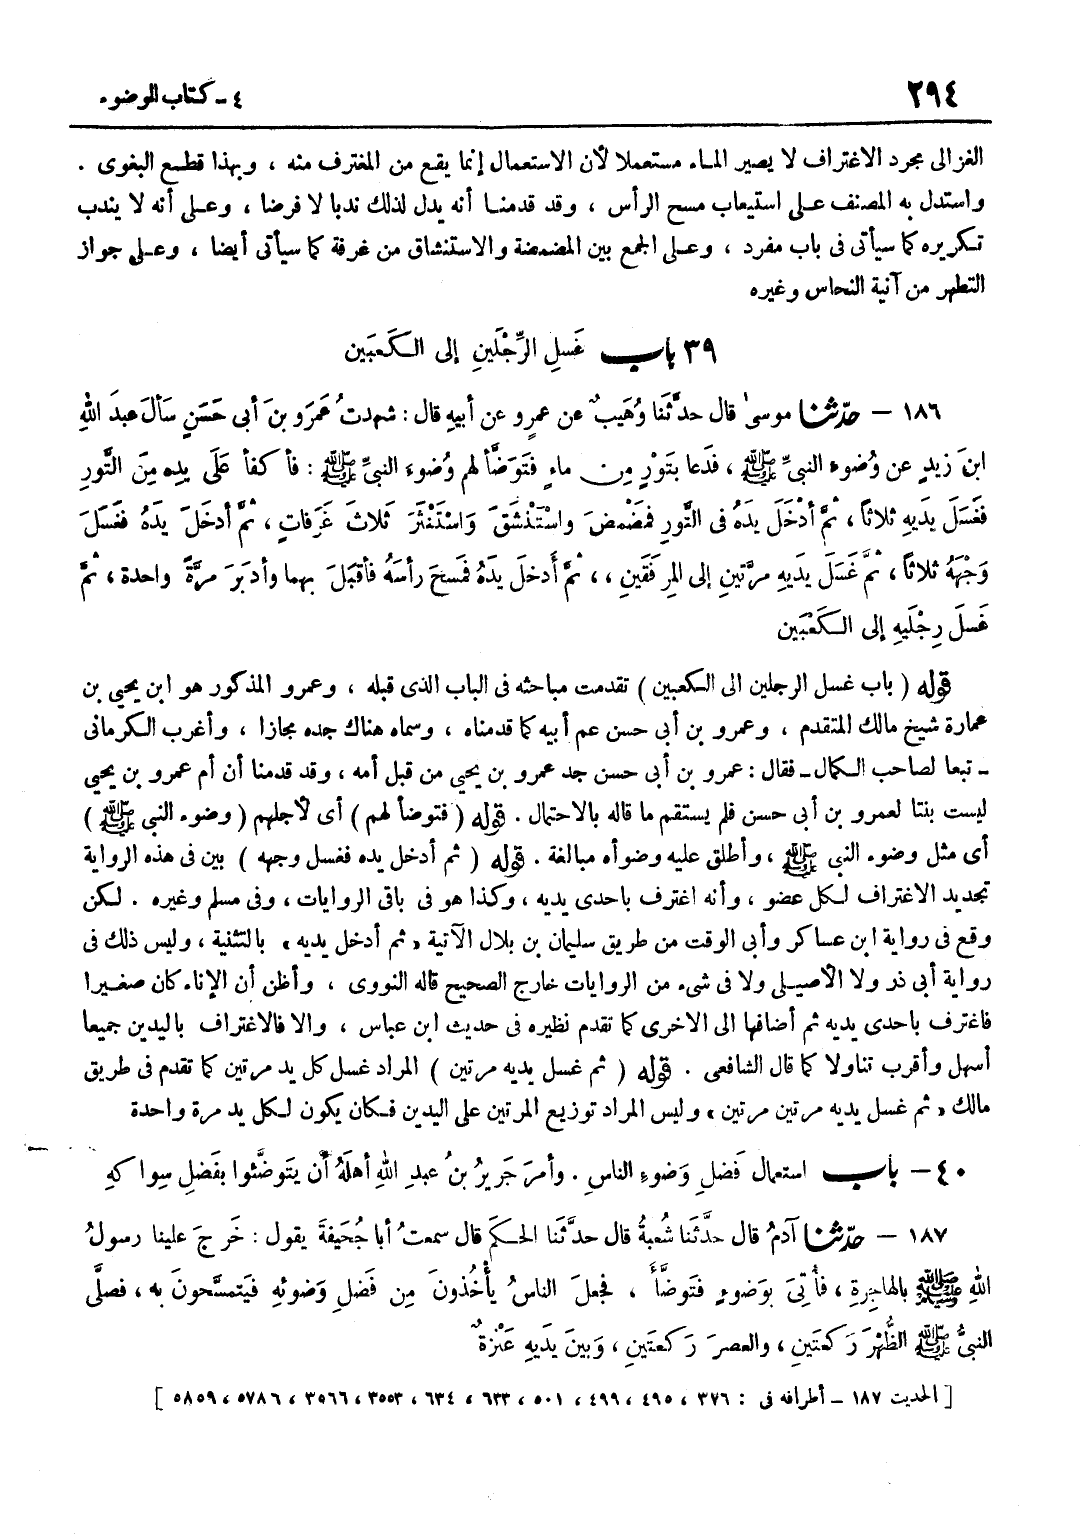 ٢٩٤
٤ - كتاب الوضوء
الغزالى مجرد الاغتراف لا يصير الماء مستعملا لأن الاستعمال إنما يقع من المغترف منه ، وبهذا قطع البغوى .
واستدل به المصنف على استيعاب مسح الرأس ، وقد قدمنا أنه يدل لذلك ندبا لا فرضا ، وعلى أنه لا يندب
تكريره كما سيأتى فى باب مفرد ، وعلى الجمع بين المضمضة والاستنشاق من غرفة كما سيأتى أيضا ، وعلى جواز
التطهر من آنية النحاس وغيره
٣٩ باب غَسلِ الرِّجْلَينِ إلى الكَعبَين
١٨٦ – حدّثنا موسىٰ قال حدَّثَنا وُهَيبٌ عن عمرٍو عن أبيهِ قال : شهدتُ عَمرَو بنَ أبى حَسَنٍ سألَ عبدَ اللهِ
ابنَ زيدٍ عن وُضوءِ النبىِّ ﷺ ، فدَعا بتَورٍ مِن ماءٍ فتَوَضَّأ لهم وُضوءَ النبىِّ ﷺ : فأ كفأ عَلَى يدِه مِنَ التَّورِ
فغَسَلَ يدَيهِ ثلاثاً ، ثمَّ أدْخَلَ يدَهُ فى التَّورِ فمَضْمضَ واستَنْشَقَ وَاستَنْثَرَ ثلاثَ غَرَفاتٍ ، ثمَّ أدخلَ يدَهُ فغَسلَ
وَجْهَهُ ثلاثاً ، ثمَّ غَسَلَ يدَيهِ مرَّتينِ إلى المِرفَقَينِ ، ، ثمَّ أَدخلَ يدَهُ فمَسحَ رأسَهُ فأقبَلَ بهما وأدبَرَ مرَّةً واحدة ، ثمَّ
غَسلَ رِجْلَيهِ إلى الكَعْبَين
قوله ( باب غسل الرجلين الى الكعبين ) تقدمت مباحثه فى الباب الذى قبله ، وعمرو المذكور هو ابن يحيى بن
عمارة شيخ مالك المتقدم ، وعمرو بن أبى حسن عم أبيه كما قدمناه ، وسماه هناك جده مجازا ، وأغرب الكرمانى
ـ تبعا لصاحب الكمال ـ فقال : عمرو بن أبى حسن جد عمرو بن يحيى من قبل أمه ، وقد قدمنا أن أم عمرو بن يحيى
ليست بنتا لعمرو بن أبى حسن فلم يستقم ما قاله بالاحتمال . قوله ( فتوضأ لهم ) أى لأجلهم ( وضوء النبى ﷺ )
أى مثل وضوء النبى ﷺ ، وأطلق عليه وضوأه مبالغة . قوله ( ثم أدخل يده فغسل وجهه ) بين فى هذه الرواية
تجديد الاغتراف لكل عضو ، وأنه اغترف باحدى يديه ، وكذا هو فى باقى الروايات ، وفى مسلم وغيره . لكن
وقع فى رواية ابن عساكر وأبى الوقت من طريق سليمان بن بلال الآتية « ثم أدخل يديه » بالتثنية ، وليس ذلك فى
رواية أبى ذر ولا الأصيلى ولا فى شىء من الروايات خارج الصحيح قاله النووى ، وأظن أن الإناء كان صغيرا
فاغترف باحدى يديه ثم أضافها الى الاخرى كما تقدم نظيره فى حديث ابن عباس ، والا فالاغتراف باليدين جميعا
أسهل وأقرب تناولا كما قال الشافعى . قوله ( ثم غسل يديه مرتين ) المراد غسل كل يد مرتين كما تقدم فى طريق
مالك « ثم غسل يديه مرتين مرتين » وليس المراد توزيع المرتين على اليدين فكان يكون لكل يد مرة واحدة
٤٠ – باب استعمال فَضلِ وَضوءِ الناسِ . وأمرَ جَريرُ بنُ عبدِ اللهِ أهلَهُ أن يَتوضَّئوا بفَضلِ سِواكهِ
١٨٧ – حدّثنا آدمُ قال حدَّثَنا شُعبةُ قال حدَّثَنا الحكَمُ قال سمعتُ أبا جُحَيفةَ يقول : خَرجَ علينا رسولُ
اللهِ ﷺ بالهاجِرةِ ، فأُتِىَ بوَضوءٍ فتَوضَّأَ ، فجعلَ الناسُ يأخُذونَ مِن فَضلِ وَضوئهِ فيَتمسَّحونَ به ، فصلَّى
النبىُّ ﷺ الظُّهْرَ رَكعتَينِ ، والعصرَ رَكعتَينِ ، وَبينَ يدَيهِ عَنَزةٌ
[ الحديث ١٨٧ – أطرافه فى : ٣٧٦ ، ٤٩٥ ، ٤٩٩ ، ٥٠١ ، ٦٣٣ ، ٦٣٤ ، ٣٥٥٣ ، ٣٥٦٦ ، ٥٧٨٦ ، ٥٨٥٩ ]